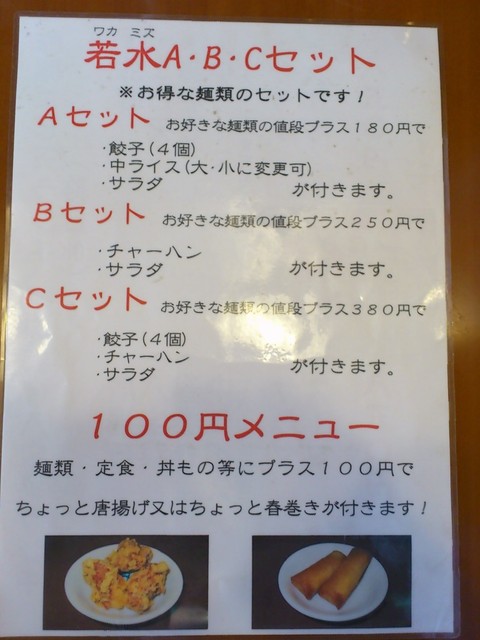 ワカ ミズ
若水A・B・Cセット
※お得な麺類のセットです！
Aセット お好きな麺類の値段プラス180円で
・餃子(4個)
・中ライス(大・小に変更可)
・サラダ が付きます。
Bセット お好きな麺類の値段プラス250円で
・チャーハン
・サラダ が付きます。
Cセット お好きな麺類の値段プラス380円で
・餃子(4個)
・チャーハン
・サラダ が付きます。
100円メニュー
麺類・定食・丼もの等にプラス100円で
ちょっと唐揚げ又はちょっと春巻きが付きます！